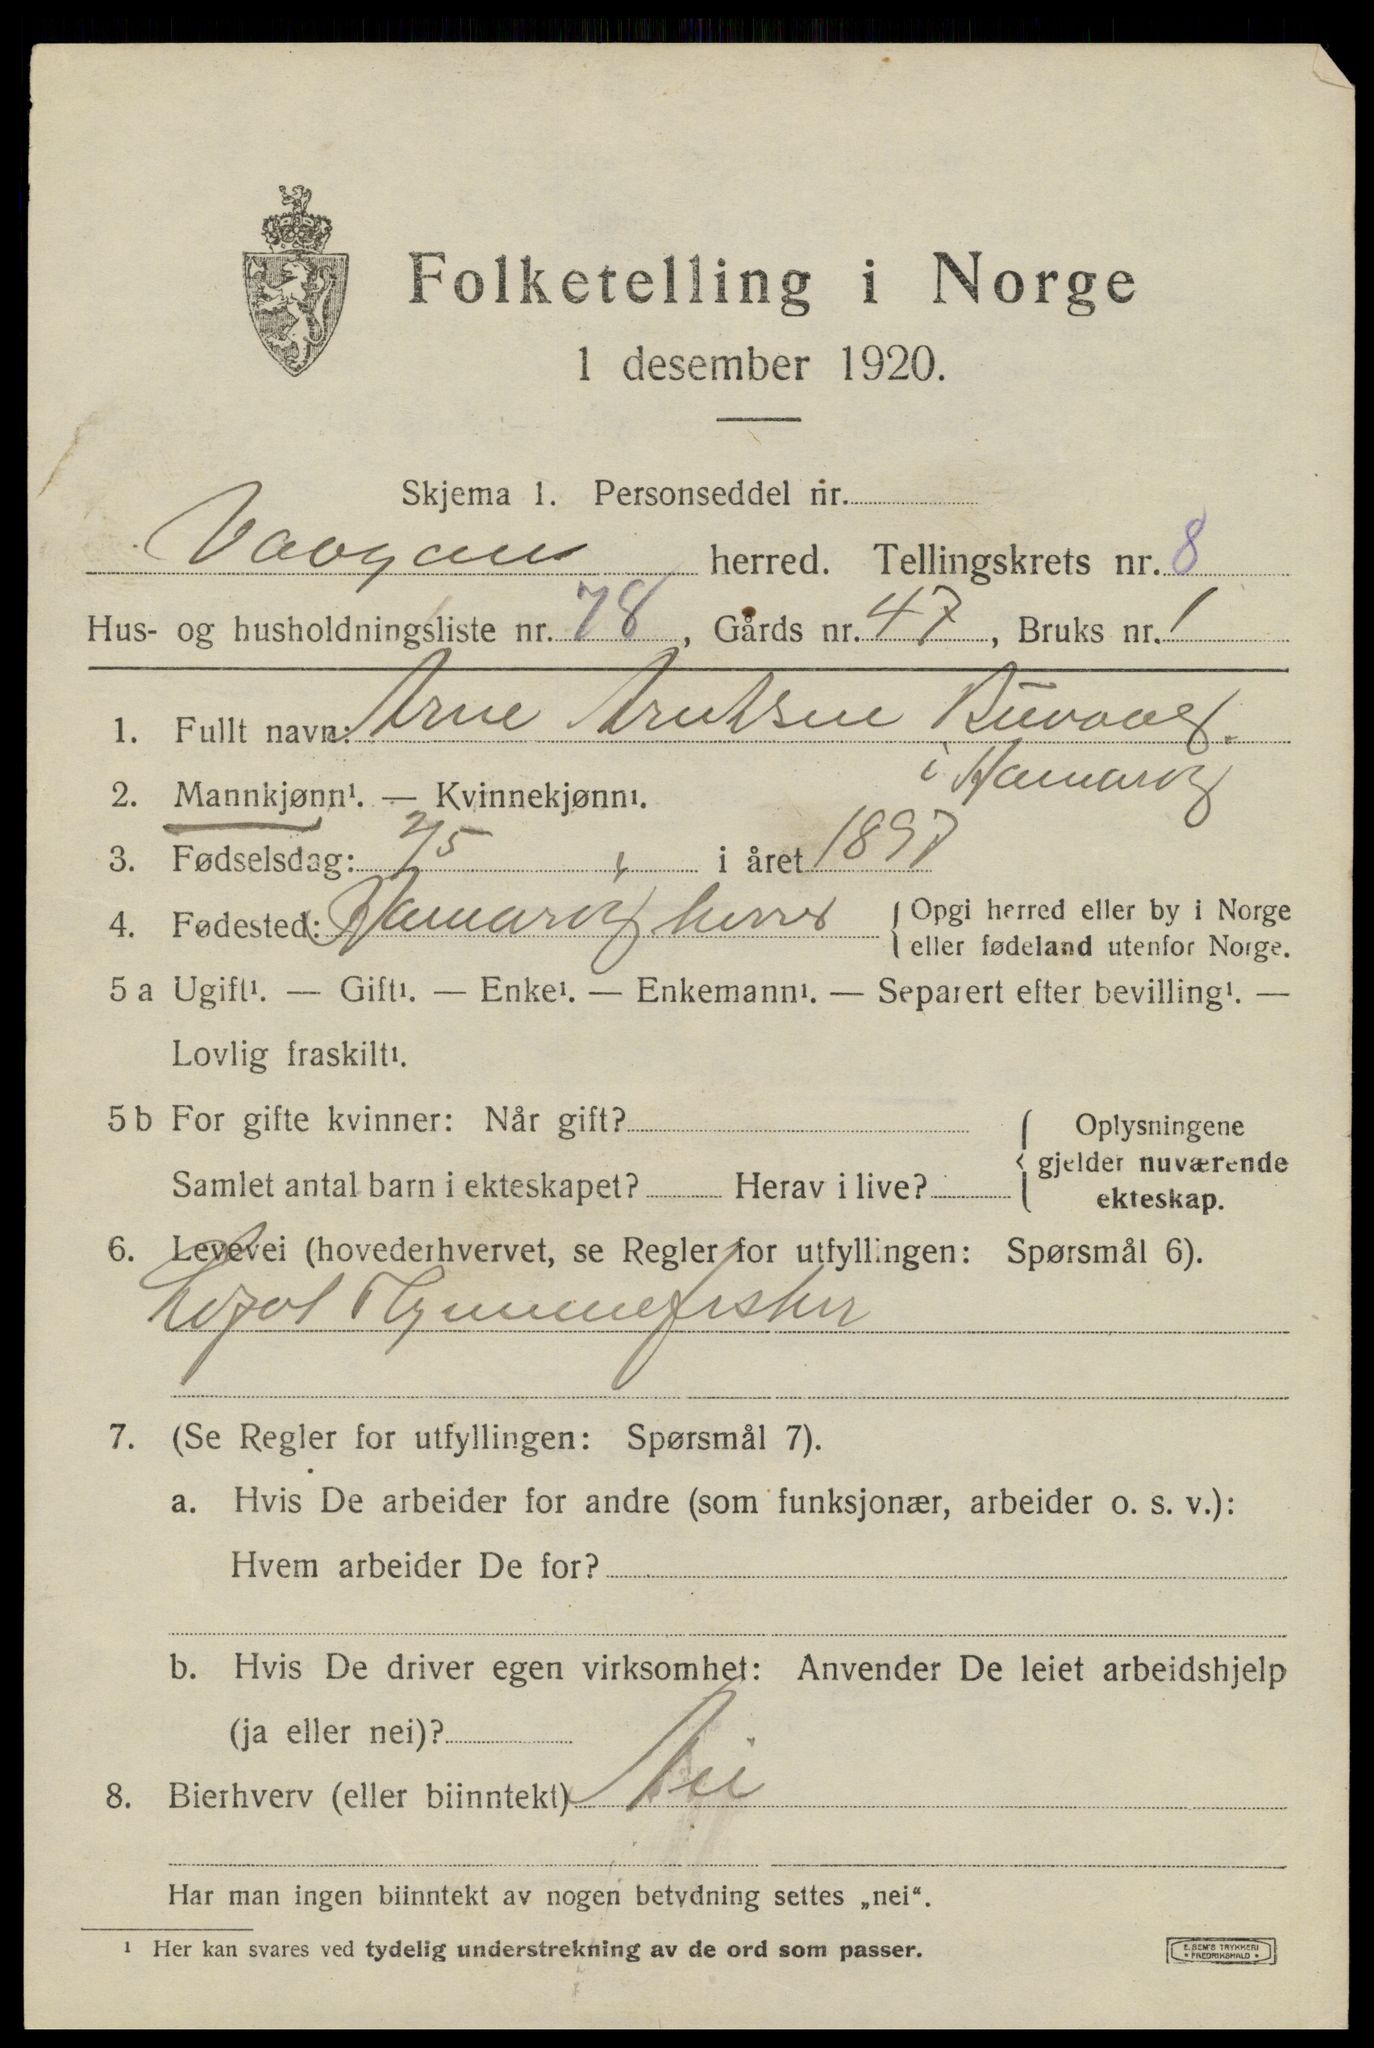 Folketelling i Norge
1 desember 1920.
Skjema 1. Personseddel nr.
Vaagan herred. Tellingskrets nr. 8
Hus- og husholdningsliste nr. 78, Gårds nr. 47, Bruks nr. 1
1. Fullt navn: Arne Arntsen Buvaag.
i Hamarøy
2. Mannkjønn¹. — Kvinnekjønn¹.
3. Fødselsdag: 2/5 i året 1897
4. Fødested: Hamarøy herred { Opgi herred eller by i Norge
eller fødeland utenfor Norge.
5 a Ugift¹. — Gift¹. — Enke¹. — Enkemann¹. — Separert efter bevilling¹. —
Lovlig fraskilt¹.
5 b For gifte kvinner: Når gift? { Oplysningene
gjelder nuværende
Samlet antal barn i ekteskapet? Herav i live?
ekteskap.
6. Levevei (hovederhvervet, se Regler for utfyllingen: Spørsmål 6).
7. (Se Regler for utfyllingen: Spørsmål 7).
a. Hvis De arbeider for andre (som funksjonær, arbeider o. s. v.):
Hvem arbeider De for?
b. Hvis De driver egen virksomhet: Anvender De leiet arbeidshjelp
(ja eller nei)?
8. Bierhverv (eller biinntekt) Nei
Har man ingen biinntekt av nogen betydning settes „nei“.
¹ Her kan svares ved tydelig understrekning av de ord som passer.
E. SEM'S TRYKKERI
• FREDRIKSHALD •